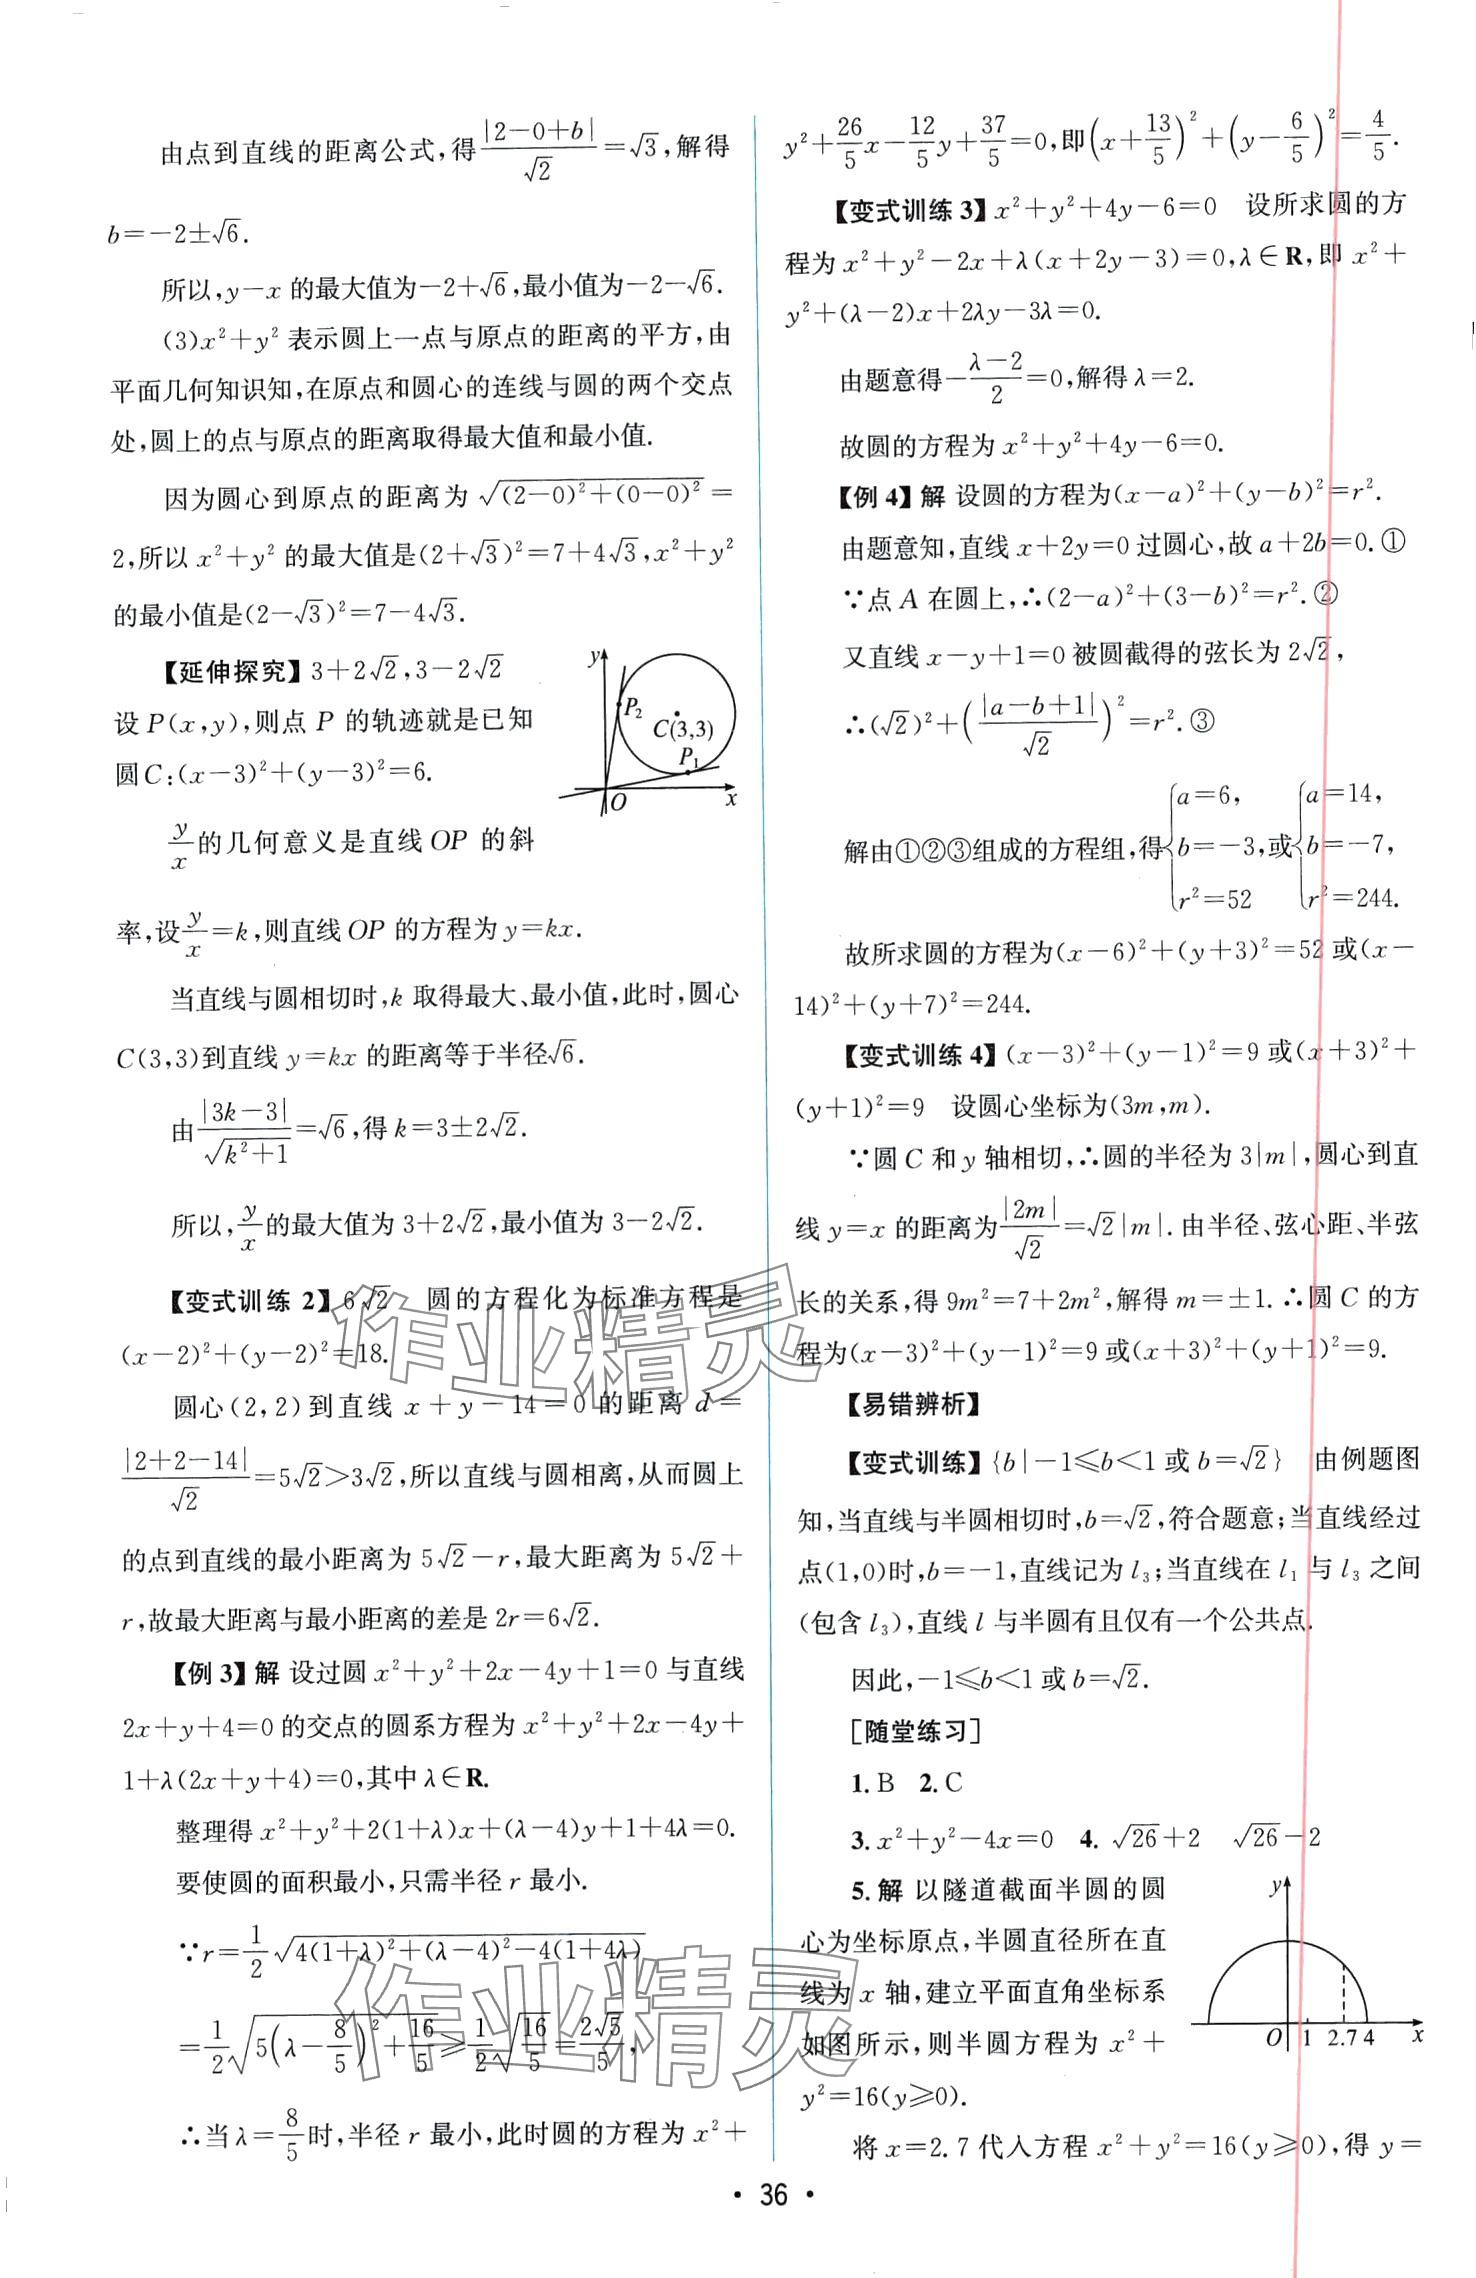 由点到直线的距离公式,得|2-0+b|/√2=√3,解得
b=-2±√6.
所以,y-x 的最大值为-2+√6,最小值为-2-√6.
(3)x²+y² 表示圆上一点与原点的距离的平方,由
平面几何知识知,在原点和圆心的连线与圆的两个交点
处,圆上的点与原点的距离取得最大值和最小值.
因为圆心到原点的距离为 √((2-0)²+(0-0)²)=
2,所以 x²+y² 的最大值是(2+√3)²=7+4√3,x²+y²
的最小值是(2-√3)²=7-4√3.
【延伸探究】3+2√2,3-2√2
设 P(x,y),则点 P 的轨迹就是已知
圆C:(x-3)²+(y-3)²=6.
y P₂ C(3,3) P₁ O x
y/x 的几何意义是直线OP 的斜
率,设 y/x=k,则直线OP 的方程为 y=kx.
当直线与圆相切时,k 取得最大、最小值,此时,圆心
C(3,3)到直线 y=kx 的距离等于半径√6.
由|3k-3|/√(k²+1)=√6,得 k=3±2√2.
所以,y/x 的最大值为 3+2√2,最小值为 3-2√2.
【变式训练 2】6√2 圆的方程化为标准方程是
(x-2)²+(y-2)²=18.
圆心(2,2)到直线 x+y-14=0 的距离 d=
|2+2-14|/√2=5√2>3√2,所以直线与圆相离,从而圆上
的点到直线的最小距离为 5√2-r,最大距离为 5√2+
r,故最大距离与最小距离的差是 2r=6√2.
【例 3】解 设过圆 x²+y²+2x-4y+1=0 与直线
2x+y+4=0 的交点的圆系方程为 x²+y²+2x-4y+
1+λ(2x+y+4)=0,其中 λ∈R.
整理得 x²+y²+2(1+λ)x+(λ-4)y+1+4λ=0.
要使圆的面积最小,只需半径 r 最小.
∵r=1/2 √(4(1+λ)²+(λ-4)²-4(1+4λ))
=1/2 √(5(λ-8/5)²+16/5)≥1/2 √(16/5)=2√5/5,
∴当 λ=8/5 时,半径 r 最小,此时圆的方程为 x²+
y²+26/5 x-12/5 y+37/5=0,即(x+13/5)²+(y-6/5)²=4/5.
【变式训练 3】x²+y²+4y-6=0 设所求圆的方
程为 x²+y²-2x+λ(x+2y-3)=0,λ∈R,即 x²+
y²+(λ-2)x+2λy-3λ=0.
由题意得-(λ-2)/2=0,解得 λ=2.
故圆的方程为 x²+y²+4y-6=0.
【例 4】解 设圆的方程为(x-a)²+(y-b)²=r².
由题意知,直线 x+2y=0 过圆心,故 a+2b=0.①
∵点 A 在圆上,∴(2-a)²+(3-b)²=r².②
又直线 x-y+1=0 被圆截得的弦长为 2√2,
∴(√2)²+(|a-b+1|/√2)²=r².③
解由①②③组成的方程组,得{a=6, b=-3, r²=52 或{a=14, b=-7, r²=244.
故所求圆的方程为(x-6)²+(y+3)²=52 或(x-
14)²+(y+7)²=244.
【变式训练 4】(x-3)²+(y-1)²=9 或(x+3)²+
(y+1)²=9 设圆心坐标为(3m,m).
∵圆 C 和 y 轴相切,∴圆的半径为 3|m|,圆心到直
线 y=x 的距离为|2m|/√2=√2|m|.由半径、弦心距、半弦
长的关系,得 9m²=7+2m²,解得 m=±1.∴圆 C 的方
程为(x-3)²+(y-1)²=9 或(x+3)²+(y+1)²=9.
【易错辨析】
【变式训练】{b|-1≤b<1 或 b=√2} 由例题图
知,当直线与半圆相切时,b=√2,符合题意;当直线经过
点(1,0)时,b=-1,直线记为 l₃;当直线在 l₁ 与 l₃ 之间
(包含 l₃),直线 l 与半圆有且仅有一个公共点.
因此,-1≤b<1 或 b=√2.
[随堂练习]
1.B 2.C
3.x²+y²-4x=0 4.√26+2 √26-2
5.解 以隧道截面半圆的圆
心为坐标原点,半圆直径所在直
线为 x 轴,建立平面直角坐标系
如图所示,则半圆方程为 x²+
y²=16(y≥0).
y O 1 2.7 4 x
将 x=2.7 代入方程 x²+y²=16(y≥0),得 y=
· 36 ·
作业精灵
作业精灵